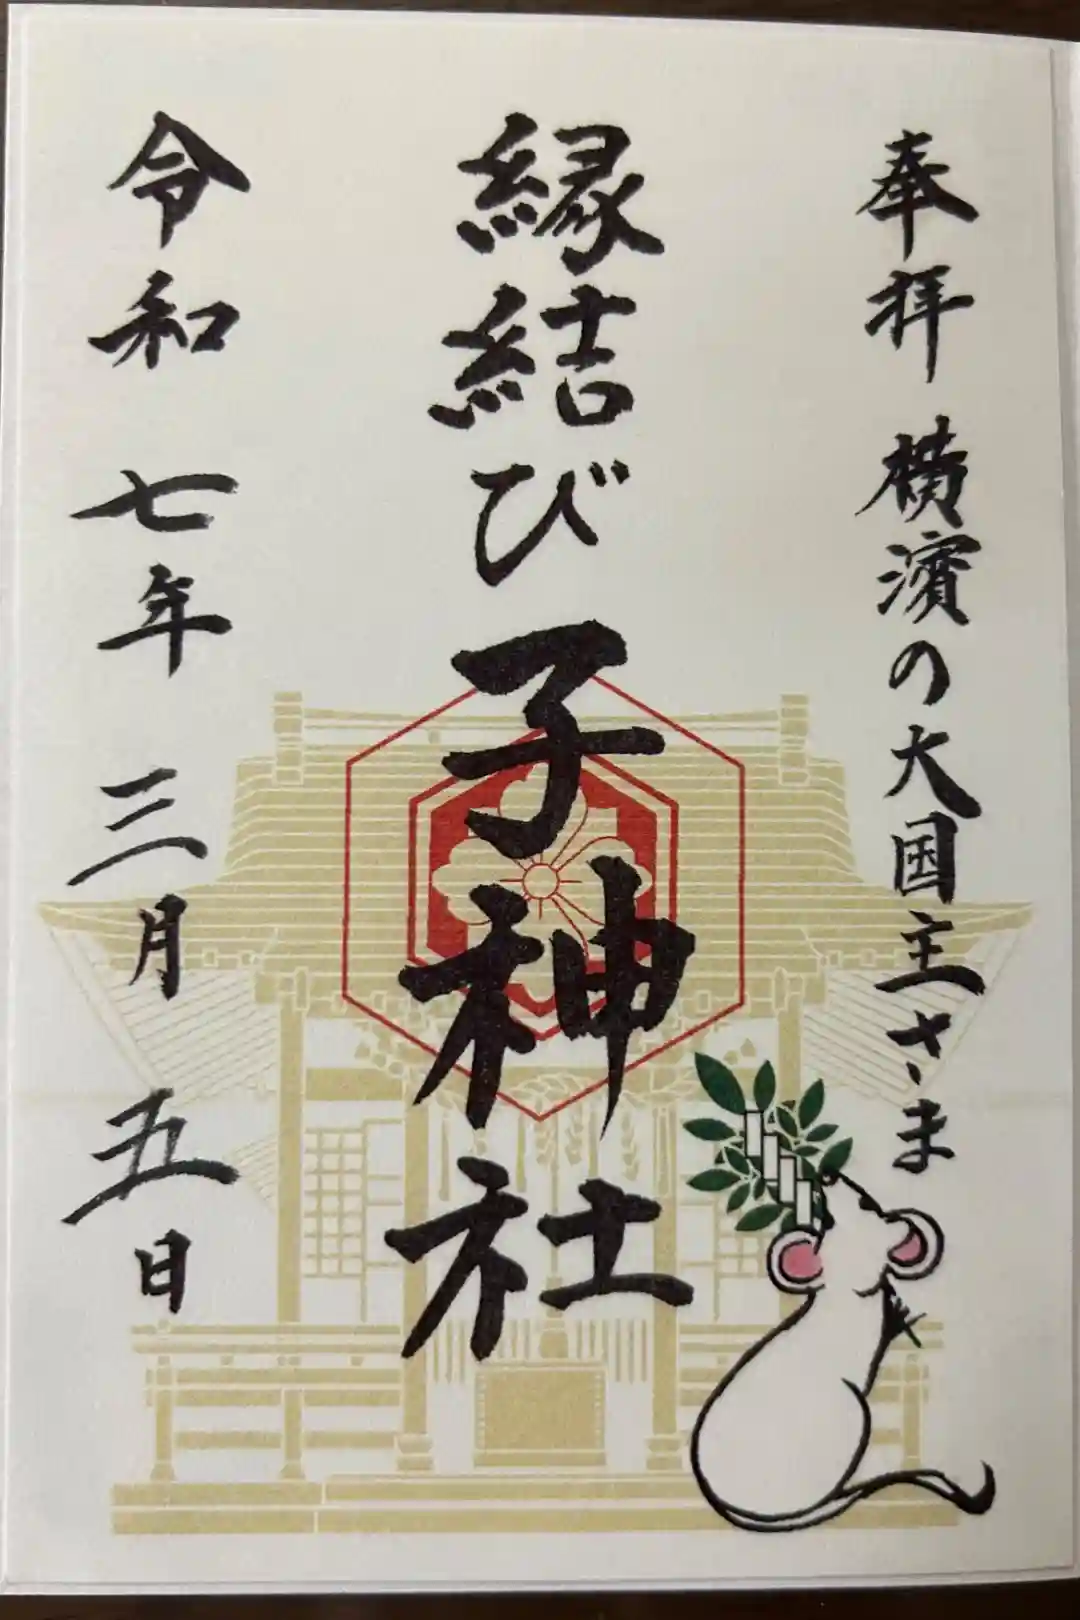 奉拝 横濱の大国主さま
縁結び子神社
令和七年三月五日